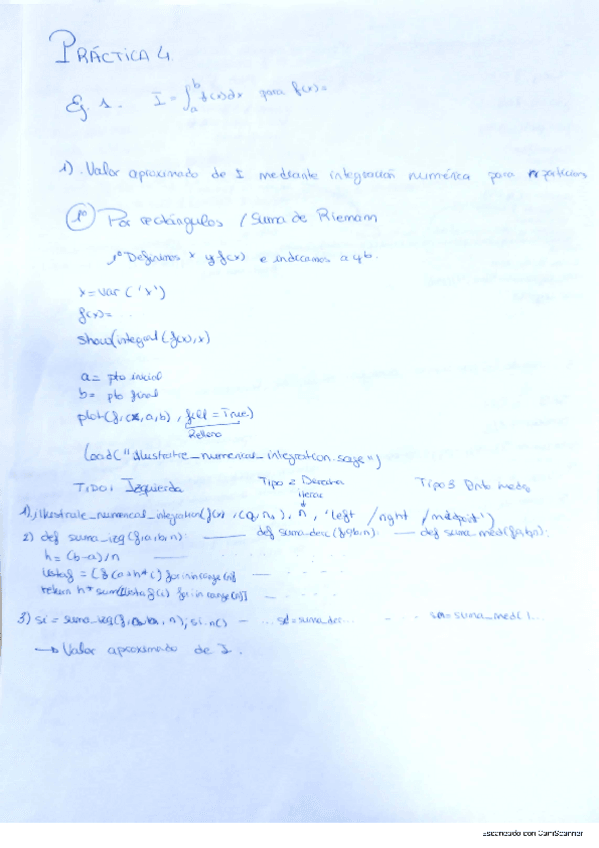 PRÁCTICA 4
Ej. 1. I = ∫ₐᵇ f(x)dx para f(x)=
1). Valor aproximado de I mediante integración numérica para n particions
1º Por rectángulos / Suma de Riemann
1º Definimos x y f(x) e indicamos a y b.
x = var ('x')
f(x)= ...
show(integral(f(x),x)
a = pto inicial
b = pto final
plot(f,(x,a,b), fill = True)
Relleno
load("illustrate_numerical_integration.sage")
TIPO 1 Izquierda Tipo 2 Derecha Tipo 3 Pnto medio
1). illustrate_numerical_integration(f(x), n, 'left / right / midpoint')
2) def suma_izq (f,a,b,n): —— def suma_der (f,a,b,n): —— def suma_med (f,a,b,n):
h = (b-a)/n —— - - - -
listaf = [f(a+h*i) for i in range(n)] — - - - -
return h* sum([listaf[i] for i in range(n)] — - - - -
3) si = suma_izq(f,a,b,n); si.n() — ... sd = suma_der... - - - sm = suma_med( ...
→ Valor aproximado de I.
Escaneado con CamScanner